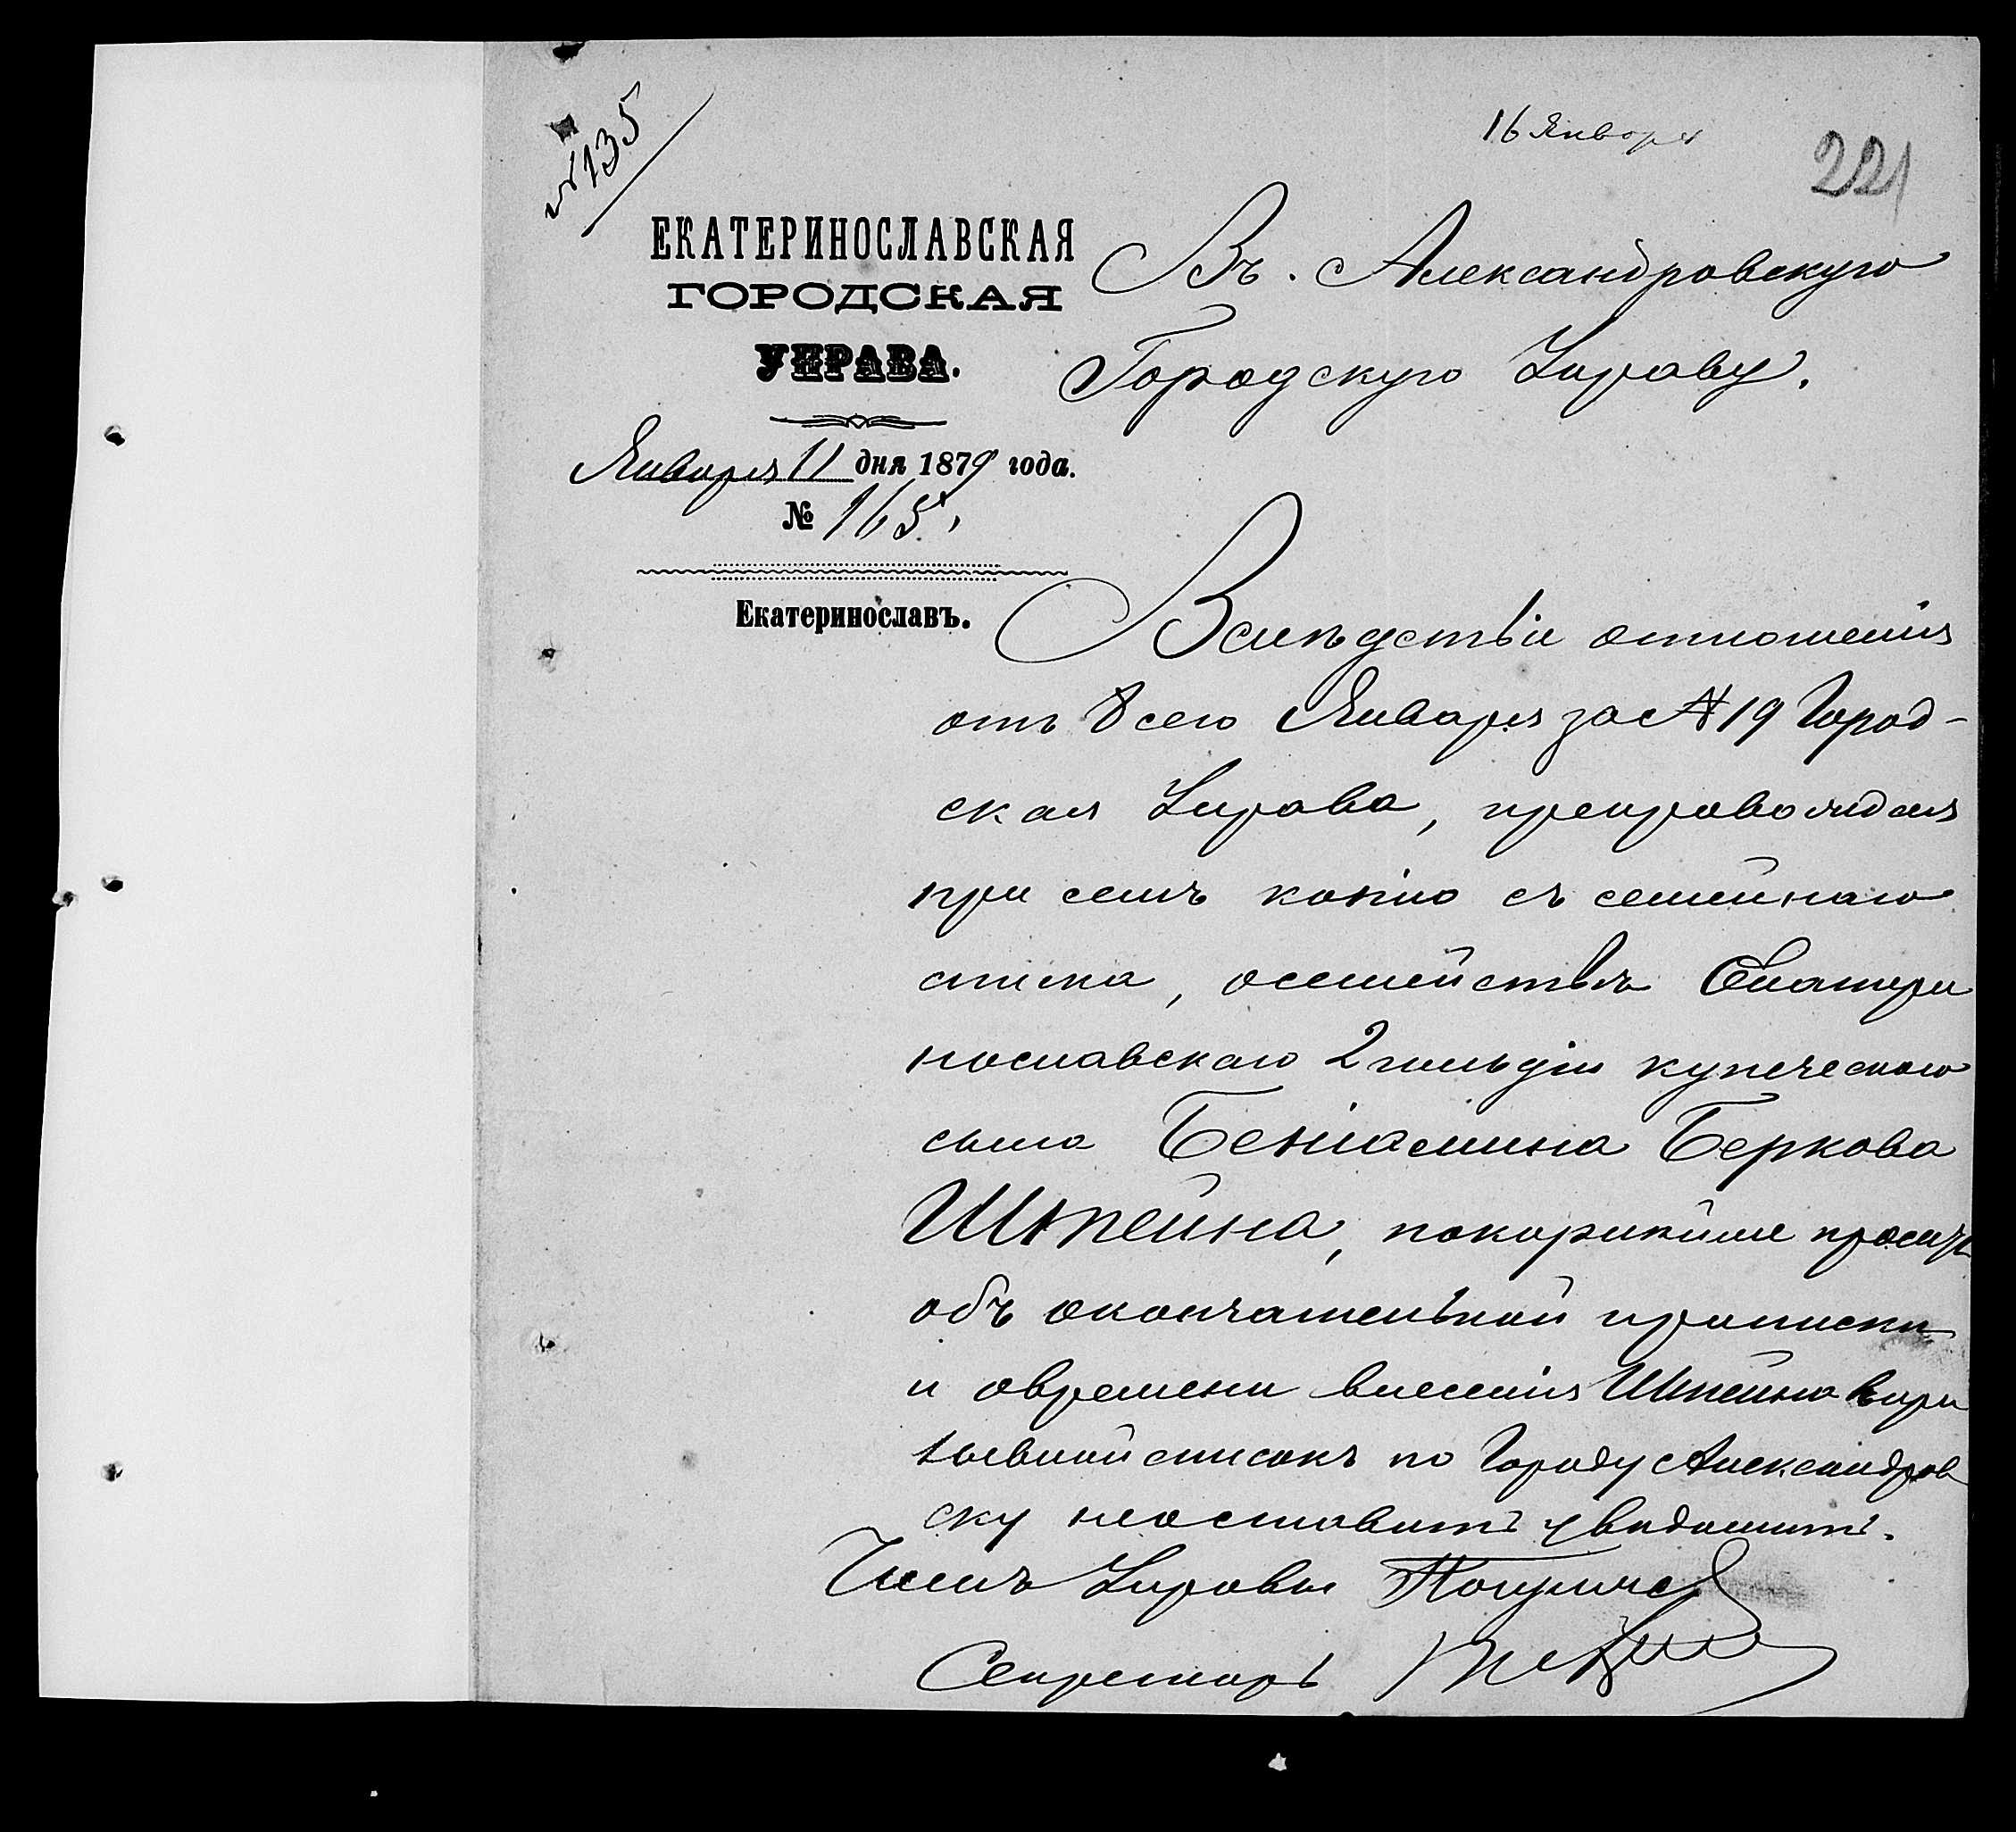 № 135
16 Января
221
ЕКАТЕРИНОСЛАВСКАЯ
ГОРОДСКАЯ
УПРАВА.
Января 11 дня 1879 года.
№ 165.
Екатеринославъ.
Въ Александровскую
Городскую Управу.
Вслѣдствіе отношенія
отъ 8 сего Января за № 19 Город-
ская Управа, препровождая
при семъ копію съ семейнаго
списка, о семействѣ Екатери
нославскаго 2 гильдіи купеческаго
сына Беніамина Беркова
Штейна, покорнѣйше проситъ
объ окончательной припискѣ
и о времени внесенія Штейна въ при
зывной списокъ по Городу Александров
ску неоставить увѣдомить.
Членъ Управы
Секретарь